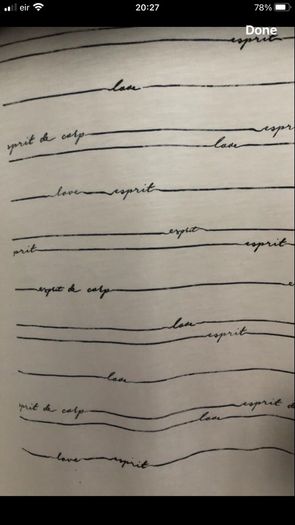 eir 20:27 78%
Done
esprit
love
sprit de corp espr
love
love esprit
esprit
prit esprit
esprit de corp e
love
esprit
love
sprit de corp esprit d
love
love esprit